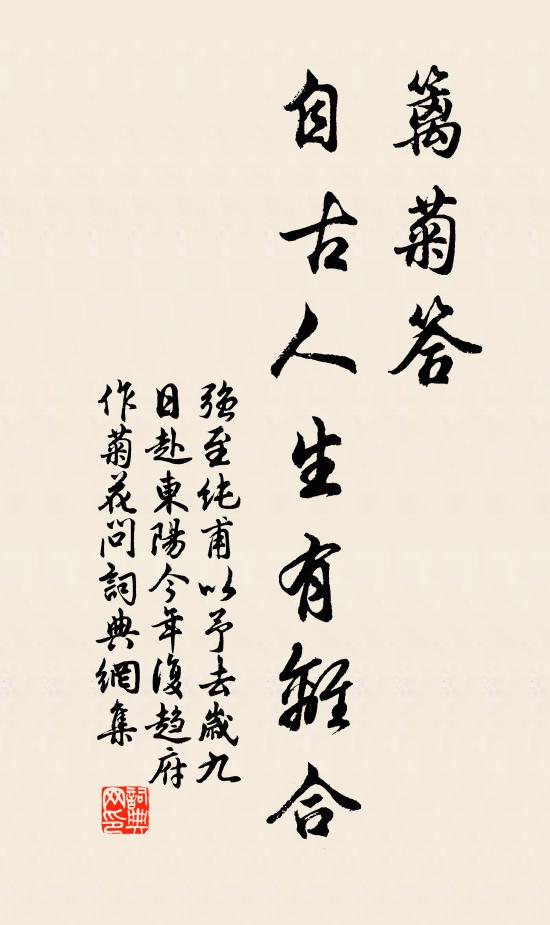 籬菊答
自古人生有離合
強至純甫以予去歲九
日赴東陽今年復趨府
作菊花問詞典網集
詞典網印